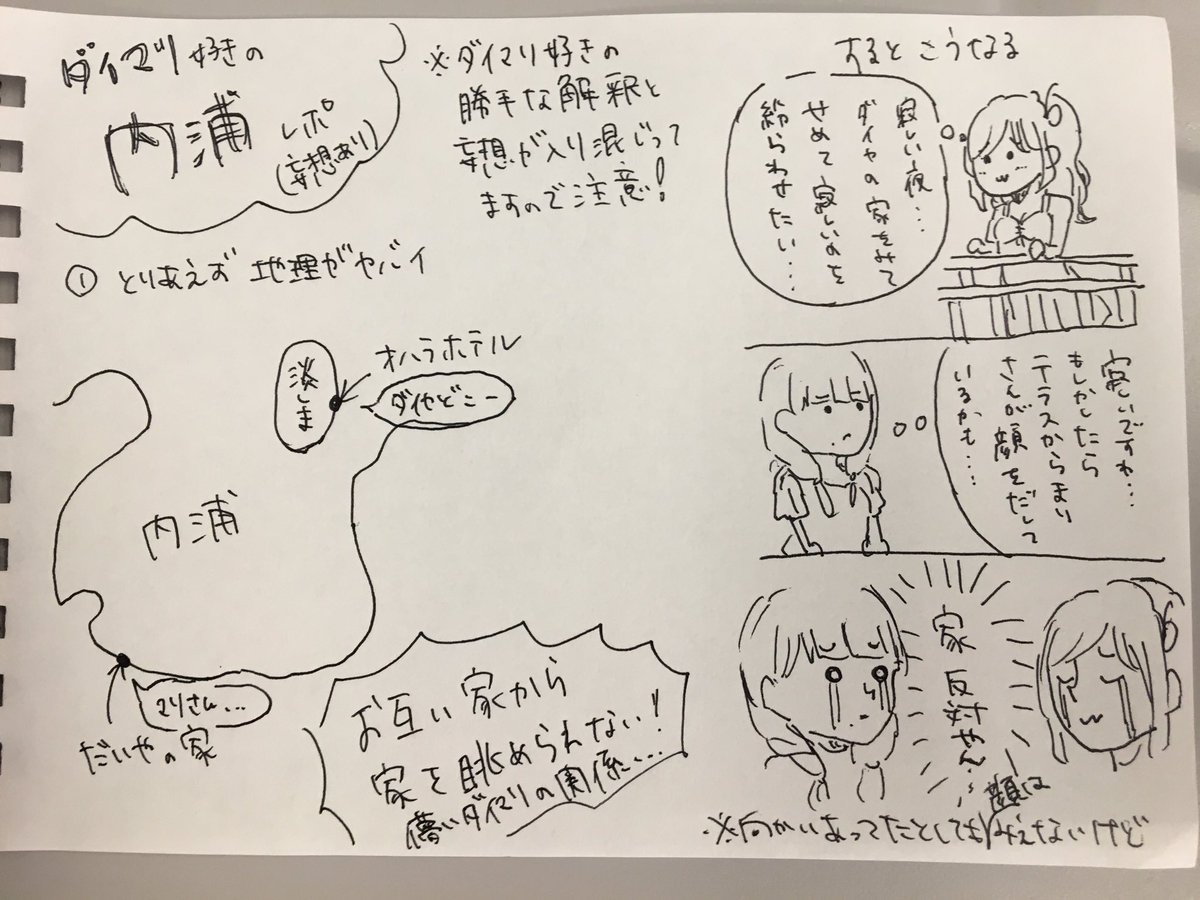 ダイマリ好きの
内浦レポ
(妄想あり)
※ダイマリ好きの
勝手な解釈と
妄想が入り混じって
ますので注意!
① とりあえず 地理がヤバイ
淡しま
オハラホテル
ダイヤどこー
内浦
マリさん…
だいやの家
お互い家から
家を眺められない!
儚いダイマリの関係…
するとこうなる
寂しい夜…
ダイヤの家をみて
せめて寂しいのを
紛らわせたい…
寂しいですわ…
もしかしたら
テラスからまり
さんが顔をだして
いるかも…
家
反対やん…
※向かいあってたとしても顔はみえないけど